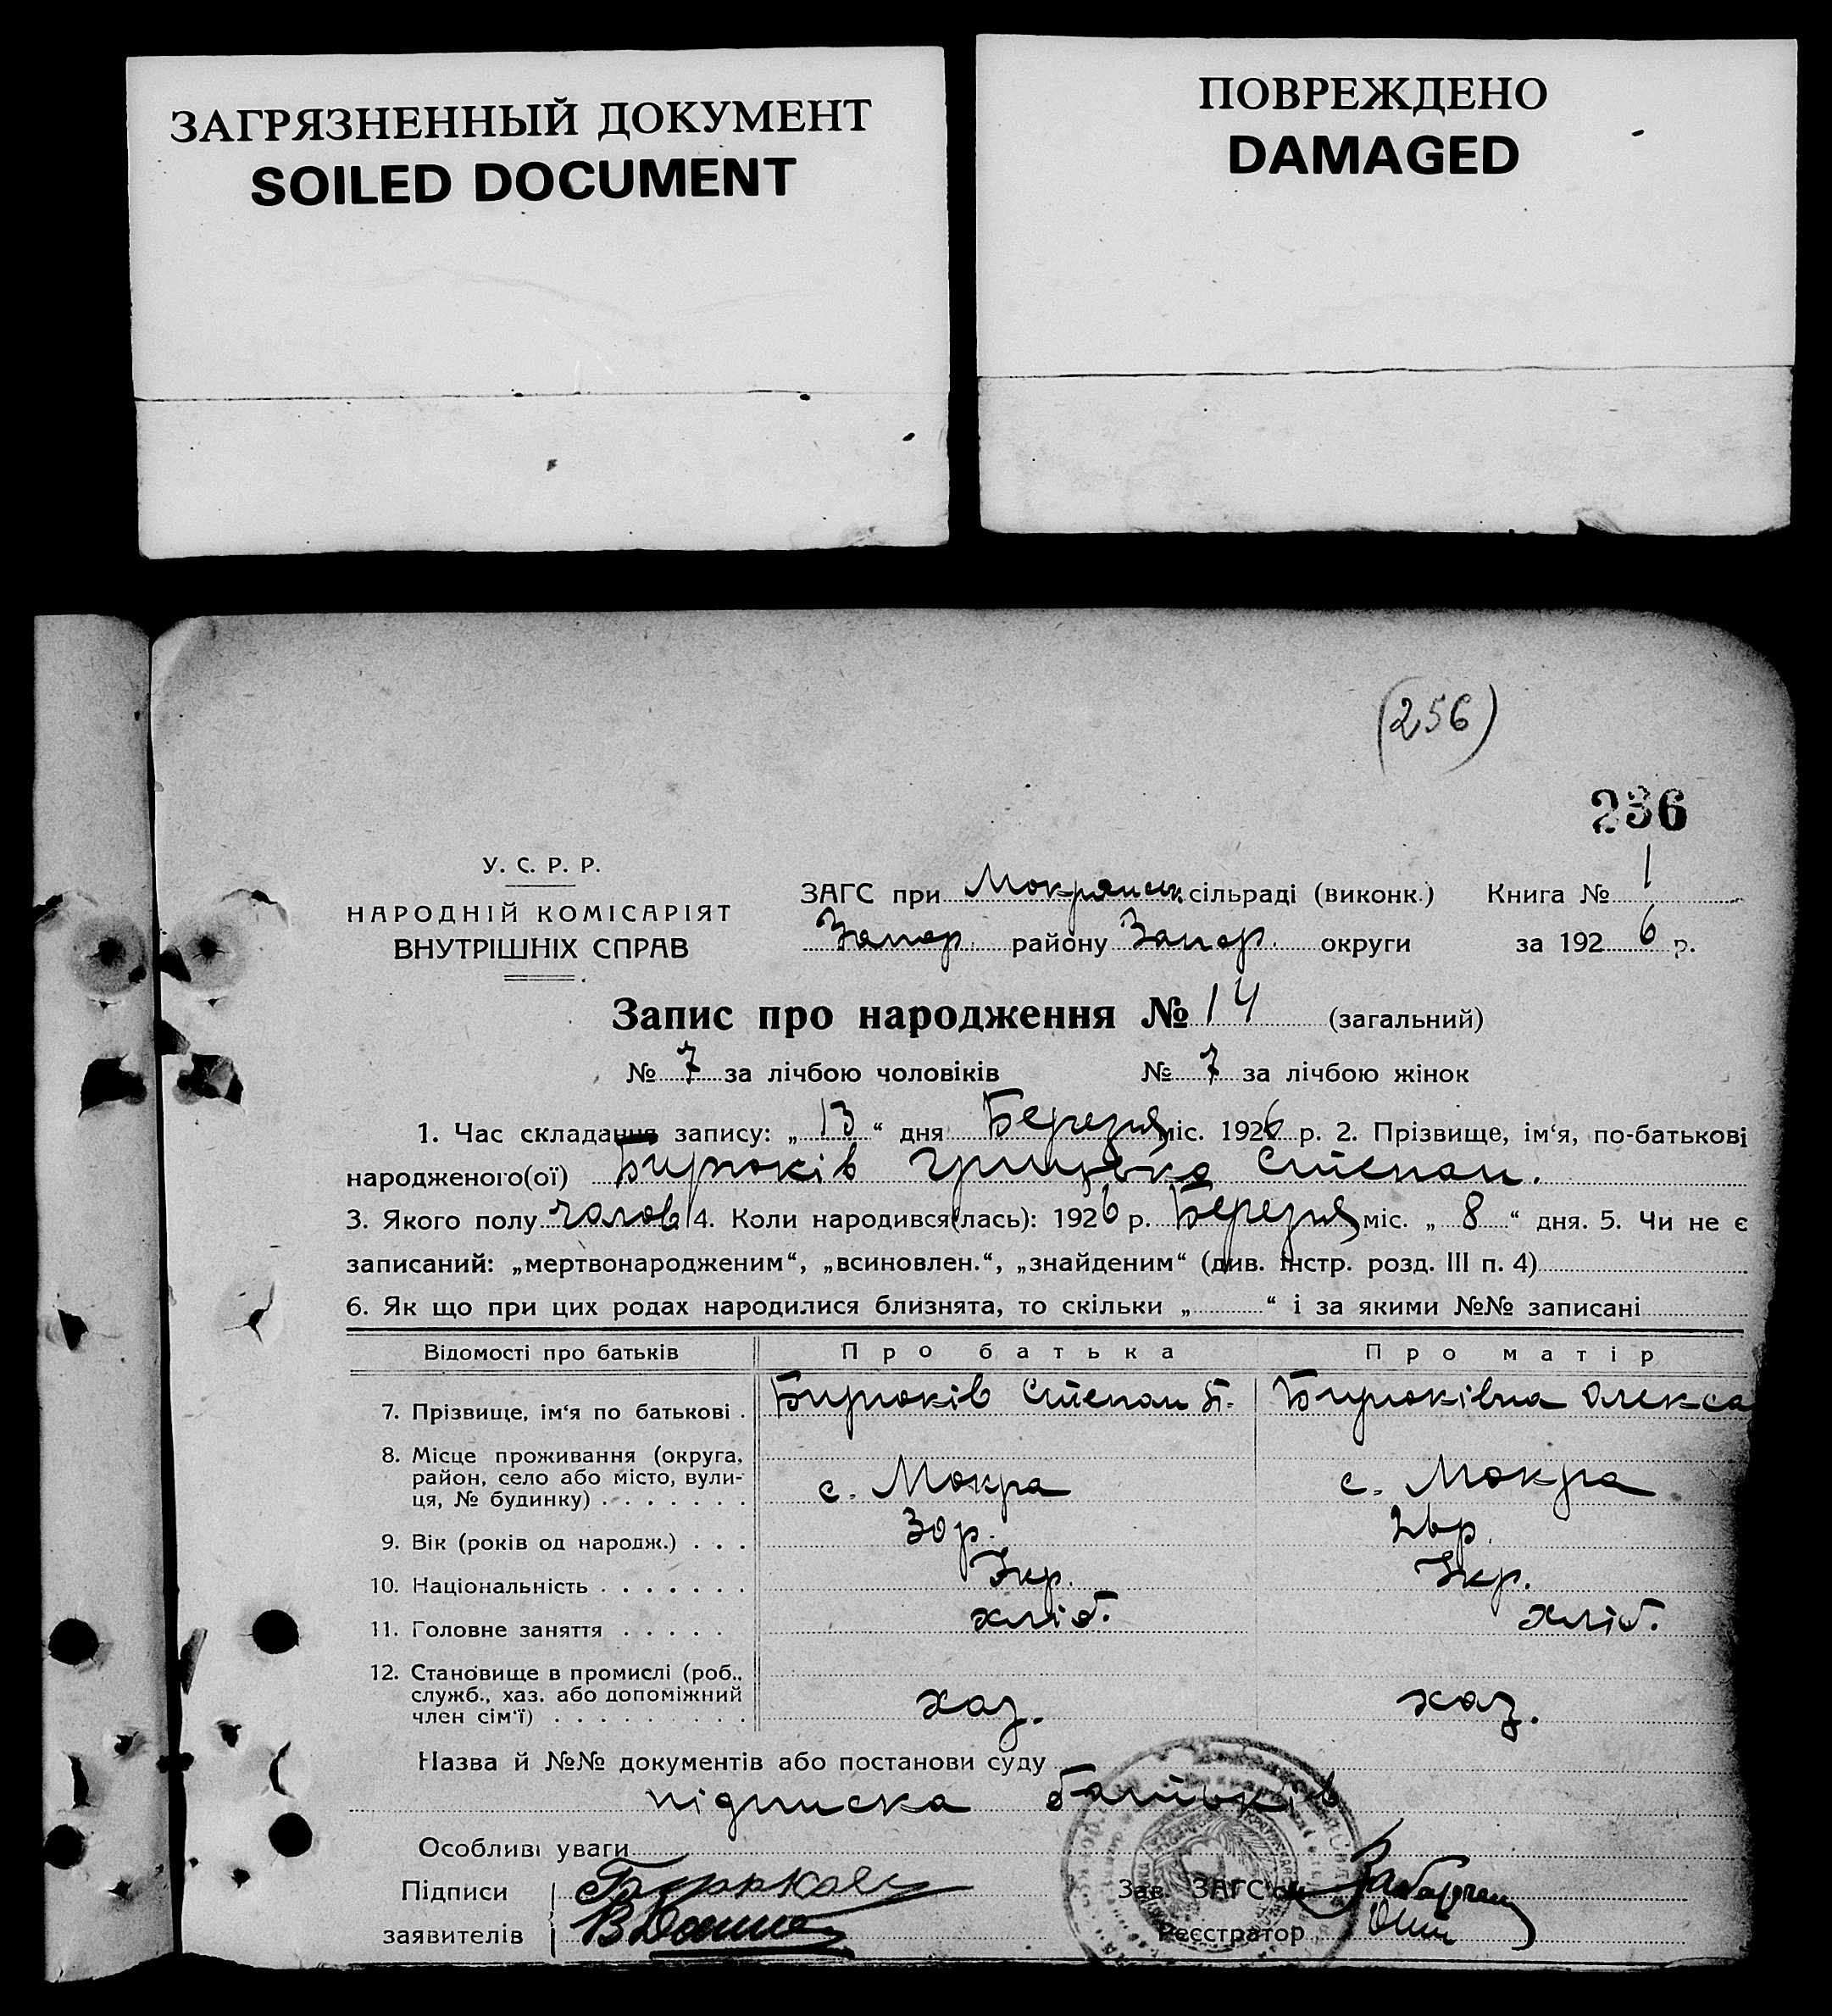 ЗАГРЯЗНЕННЫЙ ДОКУМЕНТ
SOILED DOCUMENT
ПОВРЕЖДЕНО
DAMAGED
(256)
236
У. С. Р. Р.
НАРОДНІЙ КОМІСАРІЯТ
ВНУТРІШНІХ СПРАВ
ЗАГС при Мокрянськ. сільраді (виконк.) Книга № 1
Запор. району Запор. округи за 1926 р.
Запис про народження № 14 (загальний)
№ 7 за лічбою чоловіків № 7 за лічбою жінок
1. Час складання запису: „13“ дня Березня міс. 1926 р. 2. Прізвище, ім‘я, по-батькові
народженого(ої) Бирюків Грицько Степан.
3. Якого полу чолов 4. Коли народився(лась): 1926 р. Березня міс. „8“ дня. 5. Чи не є
записаний: „мертвонародженим“, „всиновлен.“, „знайденим“ (див. інстр. розд. III п. 4)
6. Як що при цих родах народилися близнята, то скільки „ “ і за якими №№ записані
Відомості про батьків Про батька Про матір
7. Прізвище, ім‘я по батькові . Бирюків Степан П. Бирюківна Олекса
8. Місце проживання (округа, район, село або місто, вули-ця, № будинку) . . . . . . . с. Мокра с. Мокра
9. Вік (років од народж.) . . . 30 р. 26 р.
10. Національність . . . . . . . Укр. Укр.
11. Головне заняття . . . . . хліб. хліб.
12. Становище в промислі (роб., служб., хаз. або допоміжний член сім‘ї) . . . . . . . . . хаз. хаз.
Назва й №№ документів або постанови суду
підписка батьків
Особливі уваги
Підписи
заявителів
Зав. ЗАГС‘ом
Реєстратор